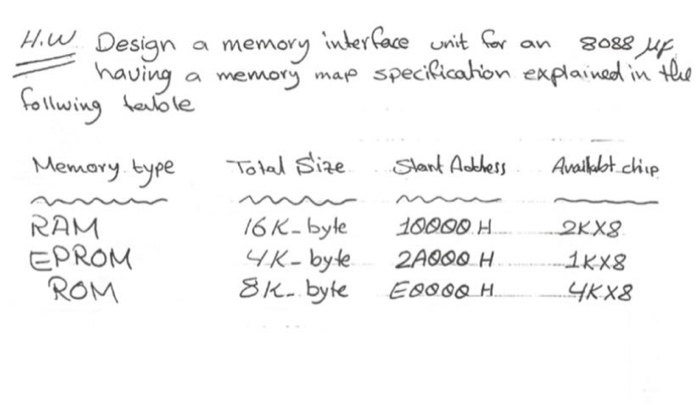 H.W Design a memory interface unit for an 8088 μp
having a memory map specification explained in the
follwing table
Memory type Total Size Start Address Availabt chip
RAM 16K-byte 10000 H 2KX8
EPROM 4K-byte 2A000 H 1KX8
ROM 8K-byte E0000 H 4KX8